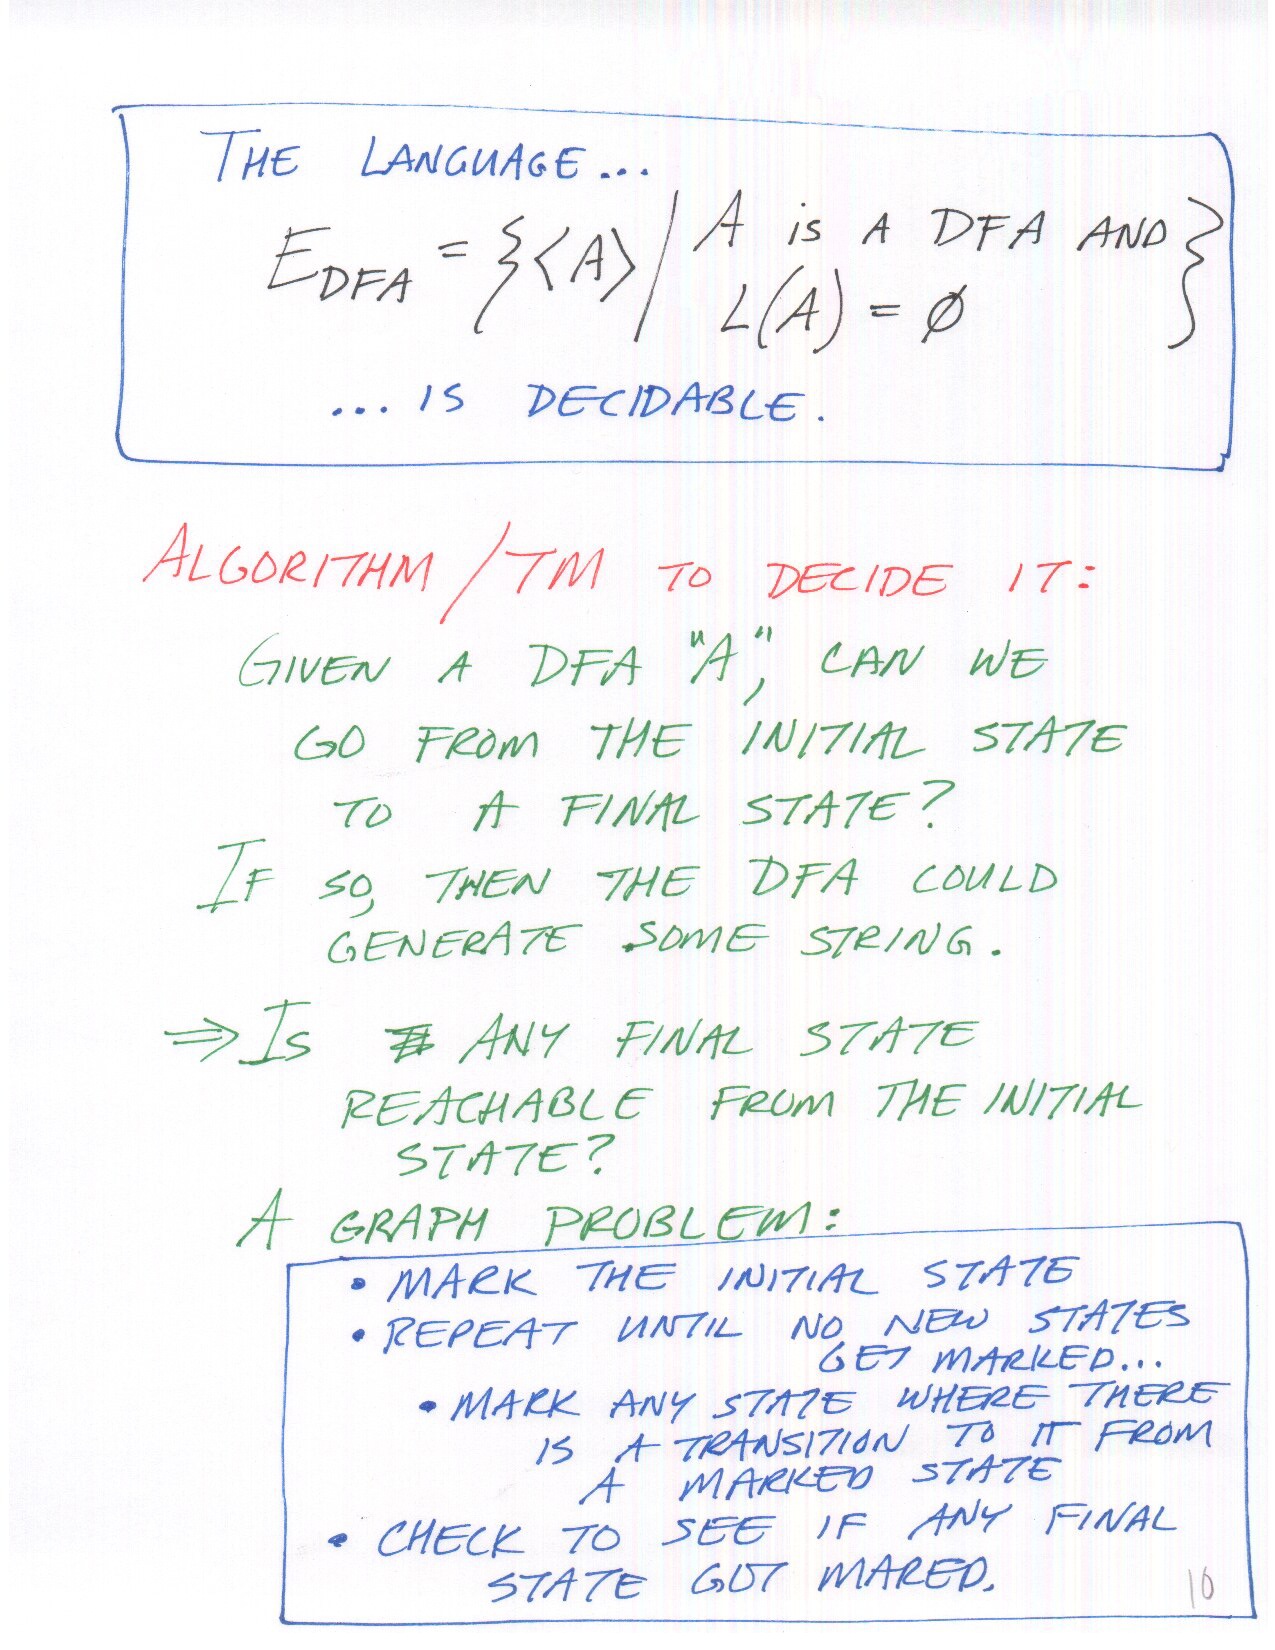 THE LANGUAGE...
E_DFA = {<A> | A is A DFA AND
L(A) = Ø }
... IS DECIDABLE.
ALGORITHM/TM TO DECIDE IT:
GIVEN A DFA "A", CAN WE
GO FROM THE INITIAL STATE
TO A FINAL STATE?
IF SO, THEN THE DFA COULD
GENERATE SOME STRING.
⇒ IS ANY FINAL STATE
REACHABLE FROM THE INITIAL
STATE?
A GRAPH PROBLEM:
• MARK THE INITIAL STATE
• REPEAT UNTIL NO NEW STATES
GET MARKED...
• MARK ANY STATE WHERE THERE
IS A TRANSITION TO IT FROM
A MARKED STATE
• CHECK TO SEE IF ANY FINAL
STATE GOT MARED.
10